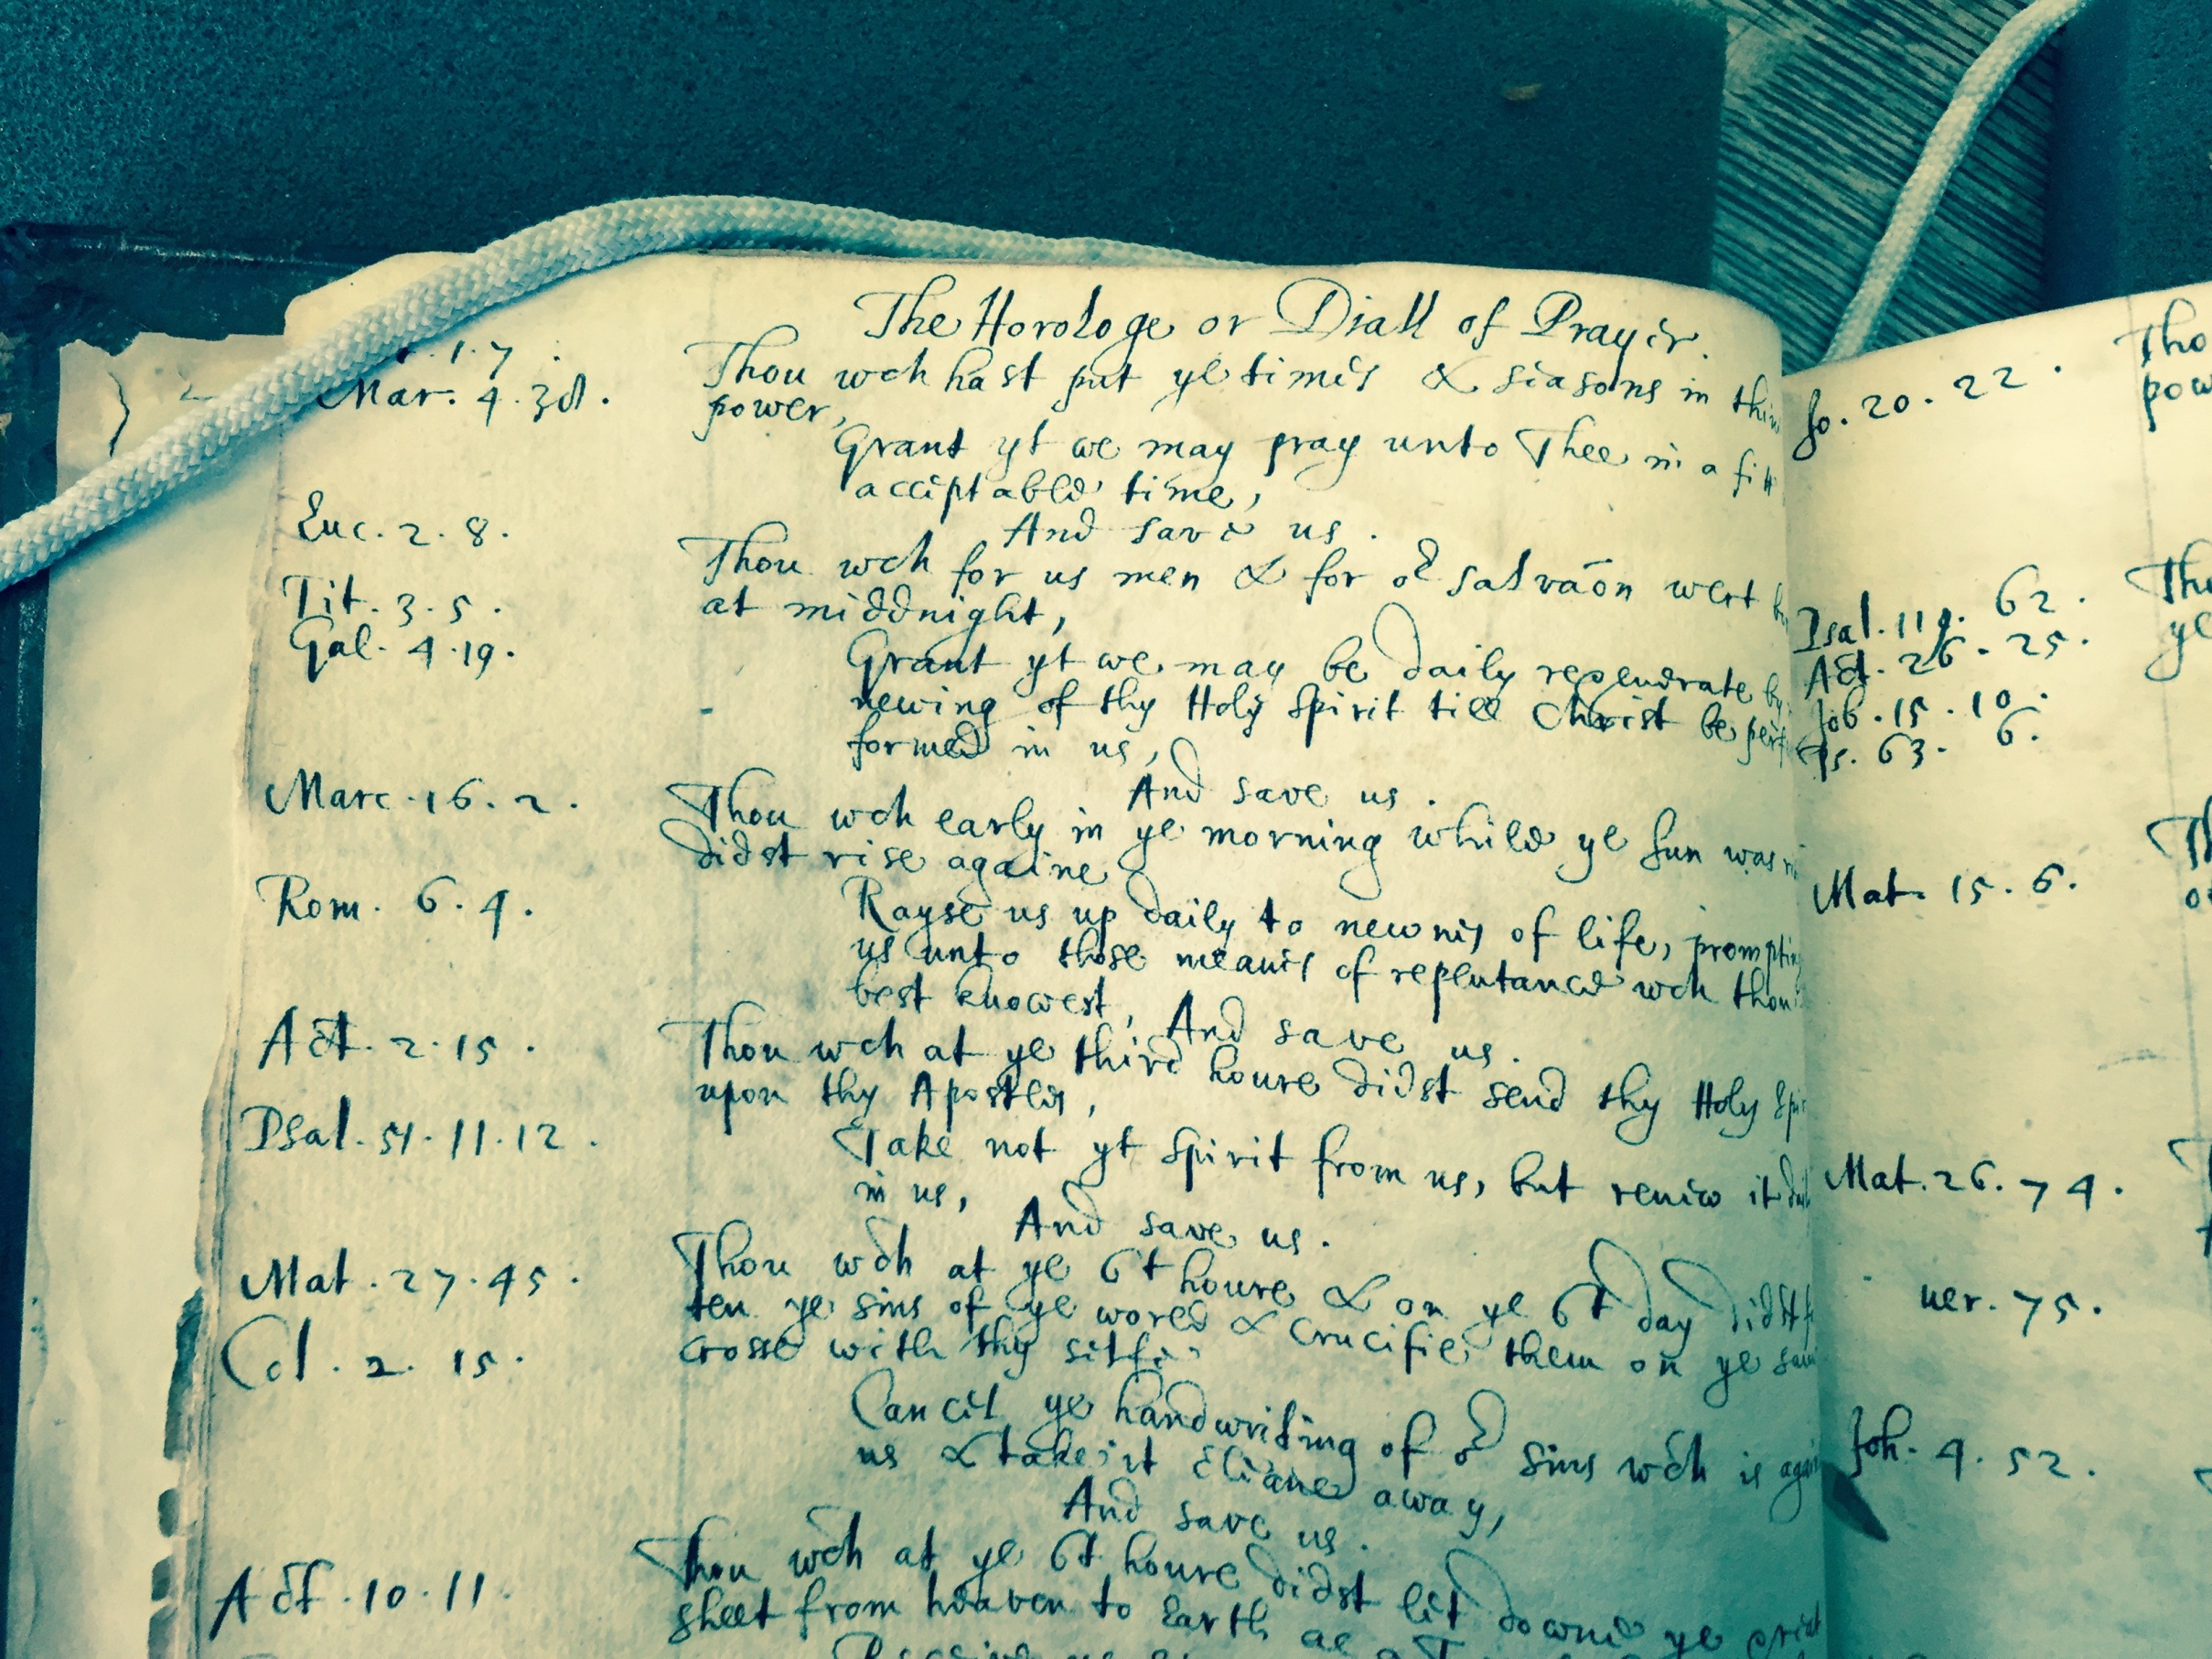 The Horologe or Diall of Prayer.
1. 7.
Mar. 4. 38.
Thou wch hast put ye times & seasons in
power,
Grant yt we may pray unto Thee in a
acceptable time,
And save us.
Luc. 2. 8.
Thou wch for us men & for or salvãon wert
at middnight,
Tit. 3. 5.
Gal. 4. 19.
Grant yt we may be daily regenerate by
newing of thy Holy Spirit till Christ be
formed in us,
And save us.
Marc. 16. 2.
Thou wch early in ye morning while ye sun was
didst rise againe
Rom. 6. 4.
Rayse us up daily to newnes of life,
us unto those meanes of repentance wch thou
best knowest,
And save us.
Act. 2. 15.
Thou wch at ye third houre didst send thy Holy
upon thy Apostles,
Psal. 51. 11. 12.
Take not yt Spirit from us, but renew it
in us,
And save us.
Mat. 27. 45.
Thou wch at ye 6t houre & on ye 6t day didst
ten ye sins of ye world & crucifie them on ye
crosse with thy selfe.
Col. 2. 15.
Cancel ye handwriting of or sins wch is
us & take it cleane away,
And save us.
Act. 10. 11.
Thou wch at ye 6t houre didst let downe ye
sheet from heaven to Earth
Jo. 20. 22.
Tho
pow
Psal. 119. 62.
Act. 26. 25.
Job. 15. 10.
Ps. 63. 6.
Tho
ye
Mat. 15. 6.
Th
Mat. 26. 74.
uer. 75.
Joh. 4. 52.